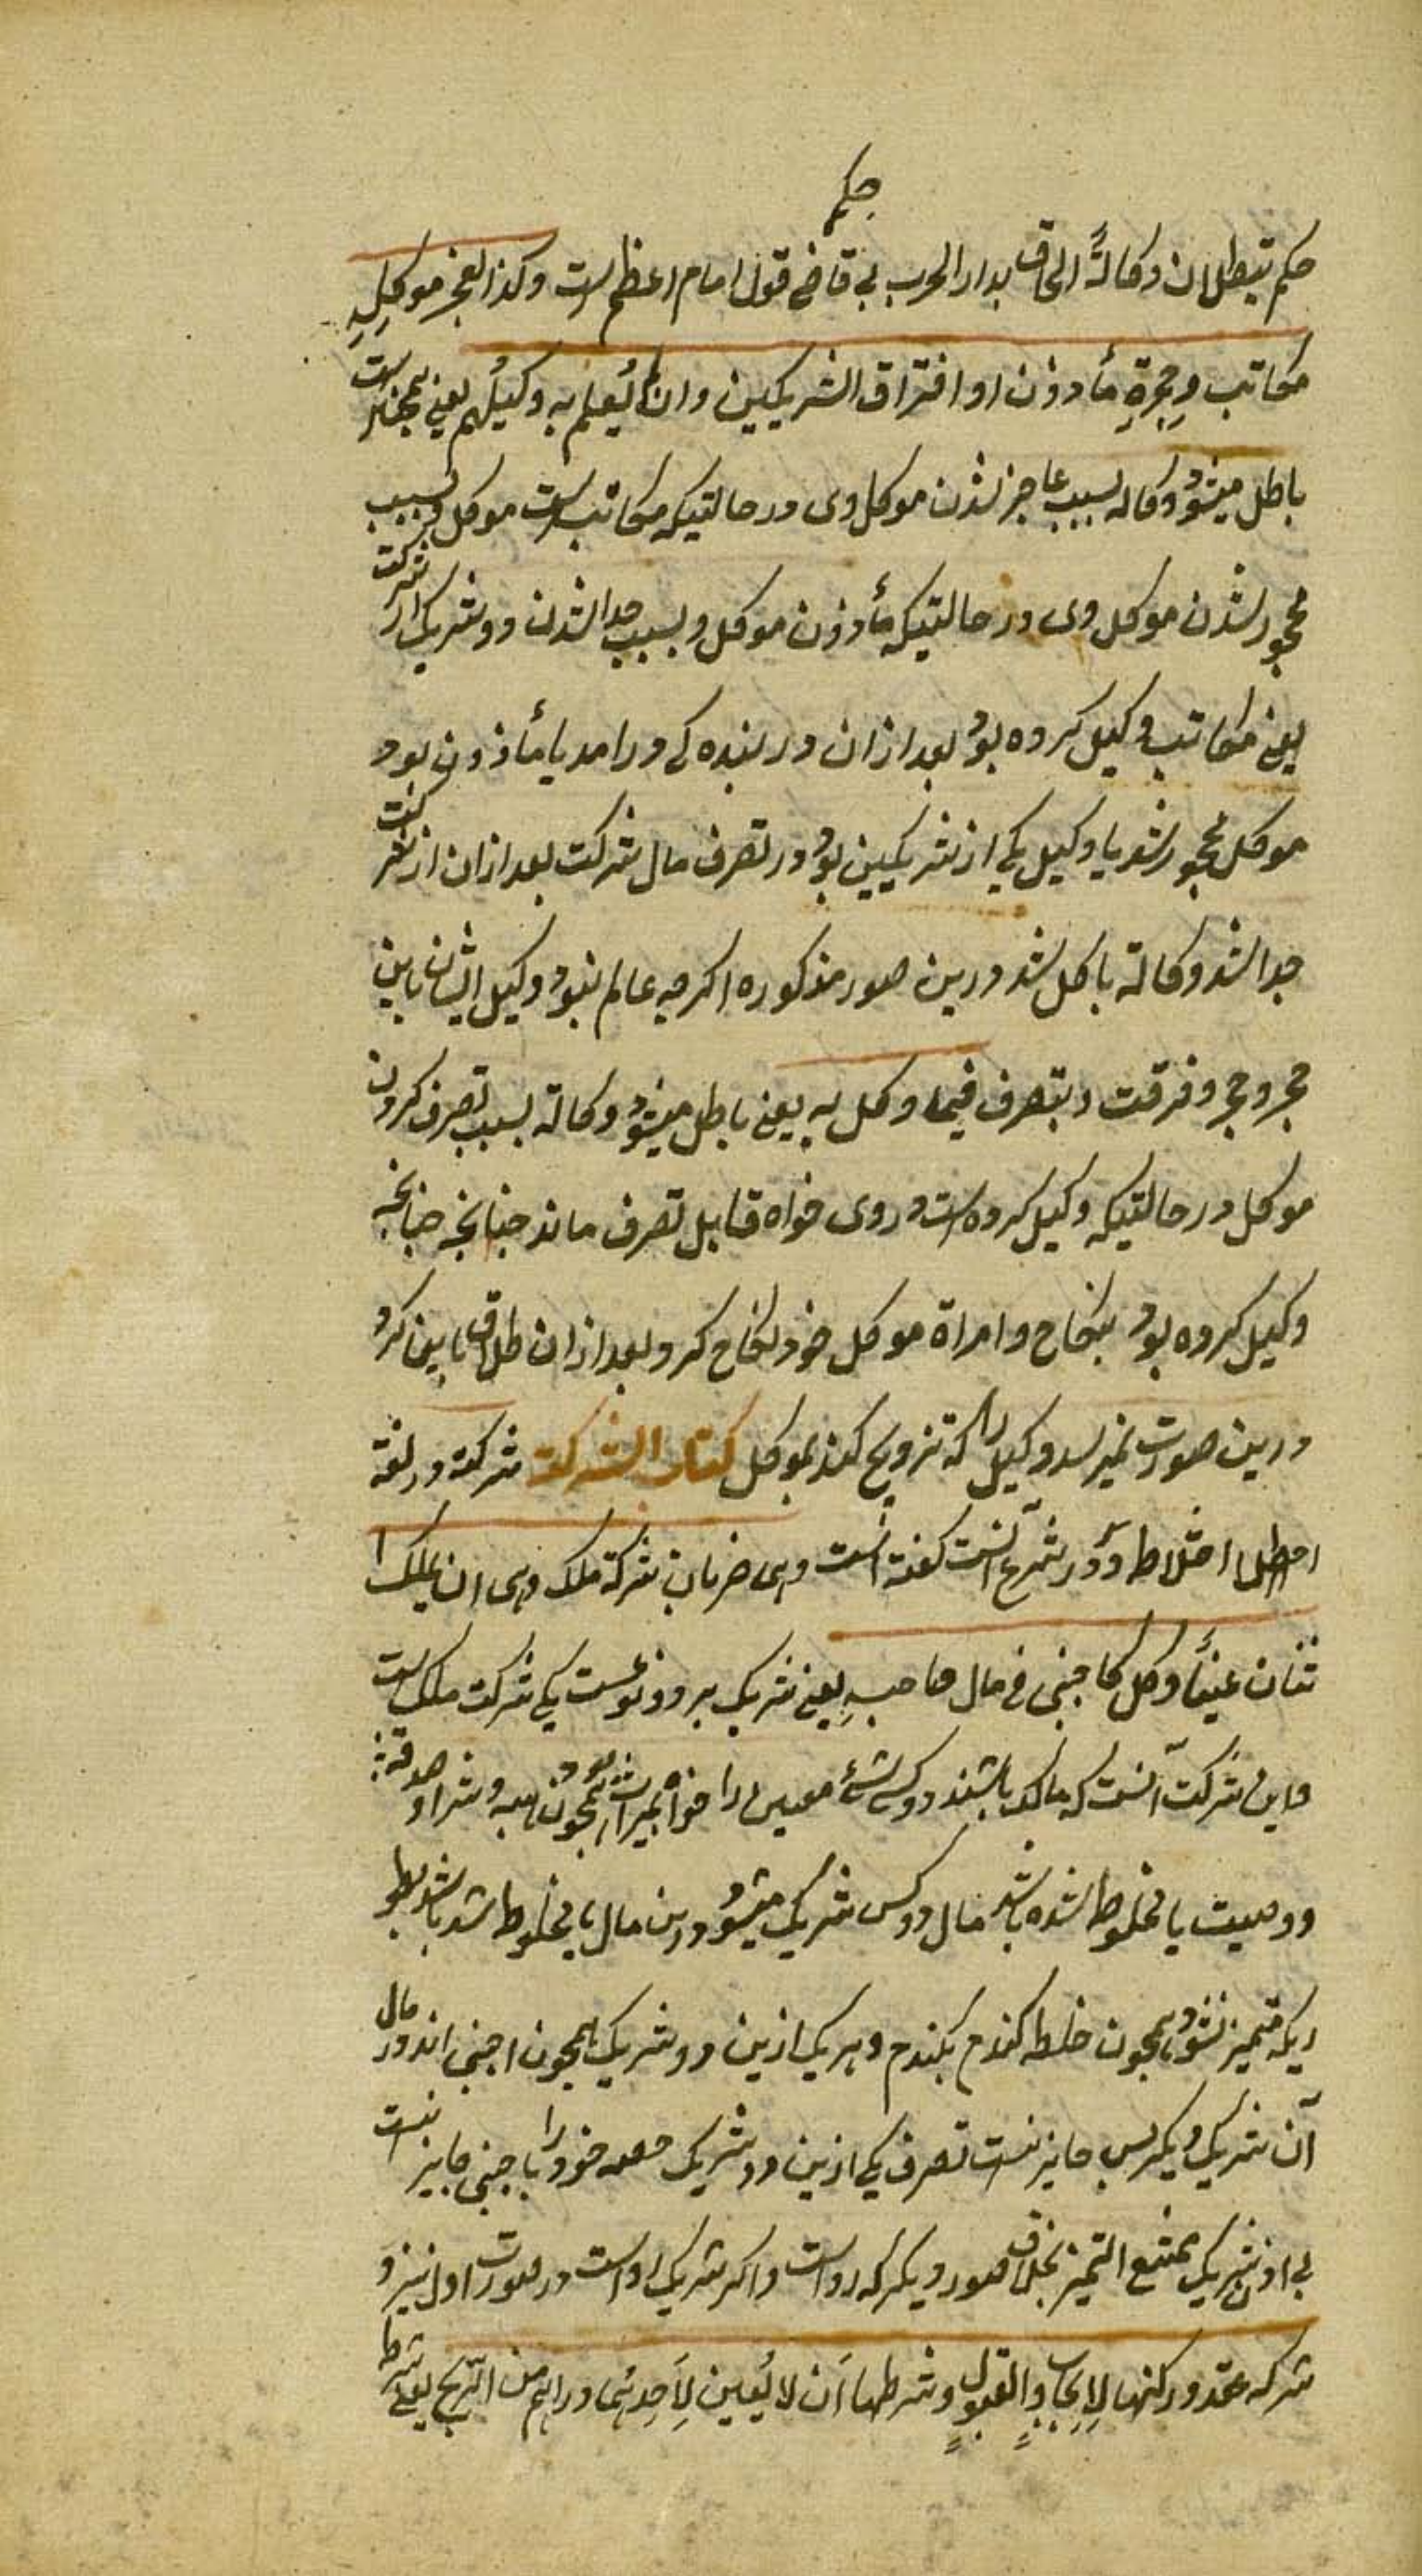 حکم
حکم تبطلان وکالة الحاق بدار الحرب بی قاضی قول امام اعظم است وکذا بعجز موکله
مکاتب وحجره مأذون او افتراق الشریکین وان لم یعلم به وکیلهم یعنی همچنان است
باطل میشود وکاله بسبب عاجز شدن موکل وی در حالتیکه مکاتب است موکل وبسبب
محجور شدن موکل وی در حالتیکه مأذون موکل وبسبب جدا شدن دو شریک از شرکت
یعنی مکاتب وکیل کرده بود بعد از ان در بنده کی درامد یا مأذون بود
موکل محجور شد یا وکیل یکی از شریکین بود در تصرف مال شرکت بعد از ان از شرکت
جدا شد وکالة باطل شد درین صور مذکوره اکرچه عالم نبود وکیل ایشان باین
عجز وحجر وفرقت وبتصرف فیما وکل به یعنی باطل میشود وکالة بسبب تصرف کردن
موکل در حالتیکه وکیل کرده است در وی خواه قابل تصرف ماند چنانچه چنانچه
وکیل کرده بود بنکاح وامراة موکل خود نکاح کرد وبعد از ان طلاق باین کرد
درین صورت نمیرسد وکیل را که تزویج کند بموکل کتاب الشرکت شرکة در لغة
اختلاط ودر شرع آنست کفته است وهی ضربان شرکة ملک وهی ان یملک ا
ثنان عینًا وکل کاجنبی فی مال صاحبه یعنی شریک بر دو نوعست یکی شرکت ملک است
واین شرکت آنست که مالک باشند دو کس شئ معین را خواه بمیراث بود همچون هبه وشرا وصدقه
ووصیت یا مخلوط شده باشد مال دو کس شریک میشود درین مال یا مخلوط شد باشد بطو
ریکه متمیز نشود همچون خلط کندم بکندم وهر یک ازین دو شریک همچون اجنبی اند در مال
آن شریک دیکر پس جایز نیست تصرف یکی ازین دو شریک حصه خود را با جنبی جایز نیست
بی اذن شریک ممتنع التمیز بخلاف صور دیکر که رواست واکر شریک رواست در صورت اول نیز و
شرکه عقد ورکنها الایجاب والقبول وشرطها أن لا یعین لأحدهما دراهم من الربح یعنی شرط